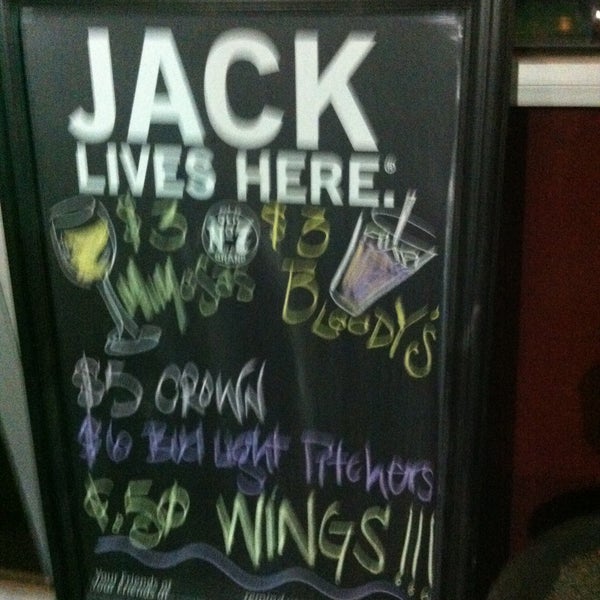 JACK
LIVES HERE:
$3 $3
OLD No.7 BRAND
Mimosas Bloody's
$5 CROWN
$6 Bud Light Pitchers
$.50 WINGS!!!
Your Friends at